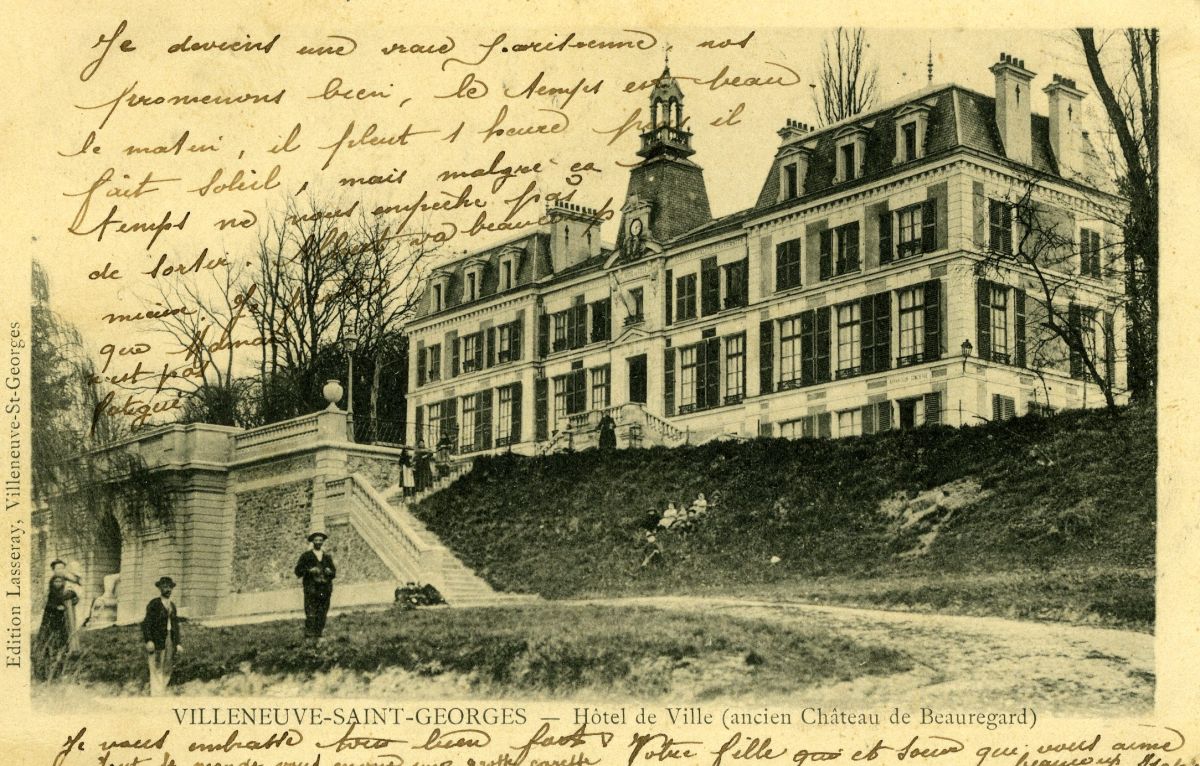 Je deviens une vraie parisienne, nos
promenons bien, le temps est beau
le matin, il pleut 1 heure puis il
fait soleil, mais malgré ça
temps ne nous empêche pas
de sortir. Albert va beaucoup
mieux. Je
que Maman
n'est pas
fatiguée
Edition Lasseray, Villeneuve-St-Georges
VILLENEUVE-SAINT-GEORGES — Hôtel de Ville (ancien Château de Beauregard)
Je vous embrasse tous bien fort Votre fille qui et soeur qui vous aime
tout le monde vous envoie une carette beaucoup